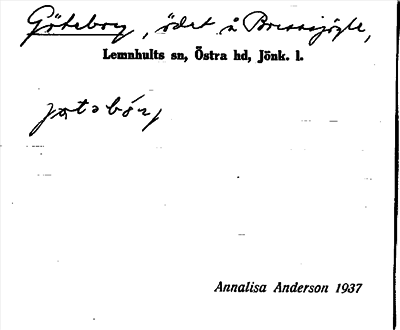 Göteborg, ödet å Bressjögle,
Lemnhults sn, Östra hd, Jönk. l.
jøtəbórj
Annalisa Anderson 1937